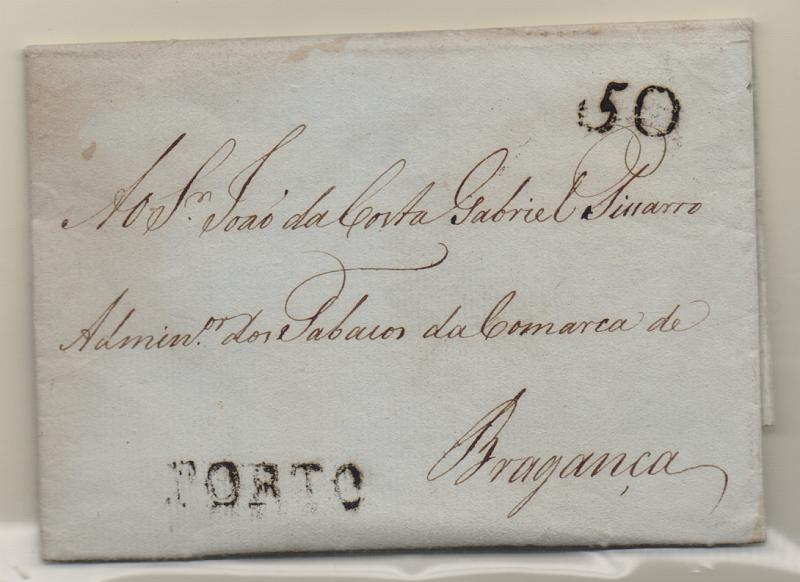 50
Ao Sr. João da Costa Gabriel Pissarro
Admin.or dos Tabacos da Comarca de
Bragança
PORTO